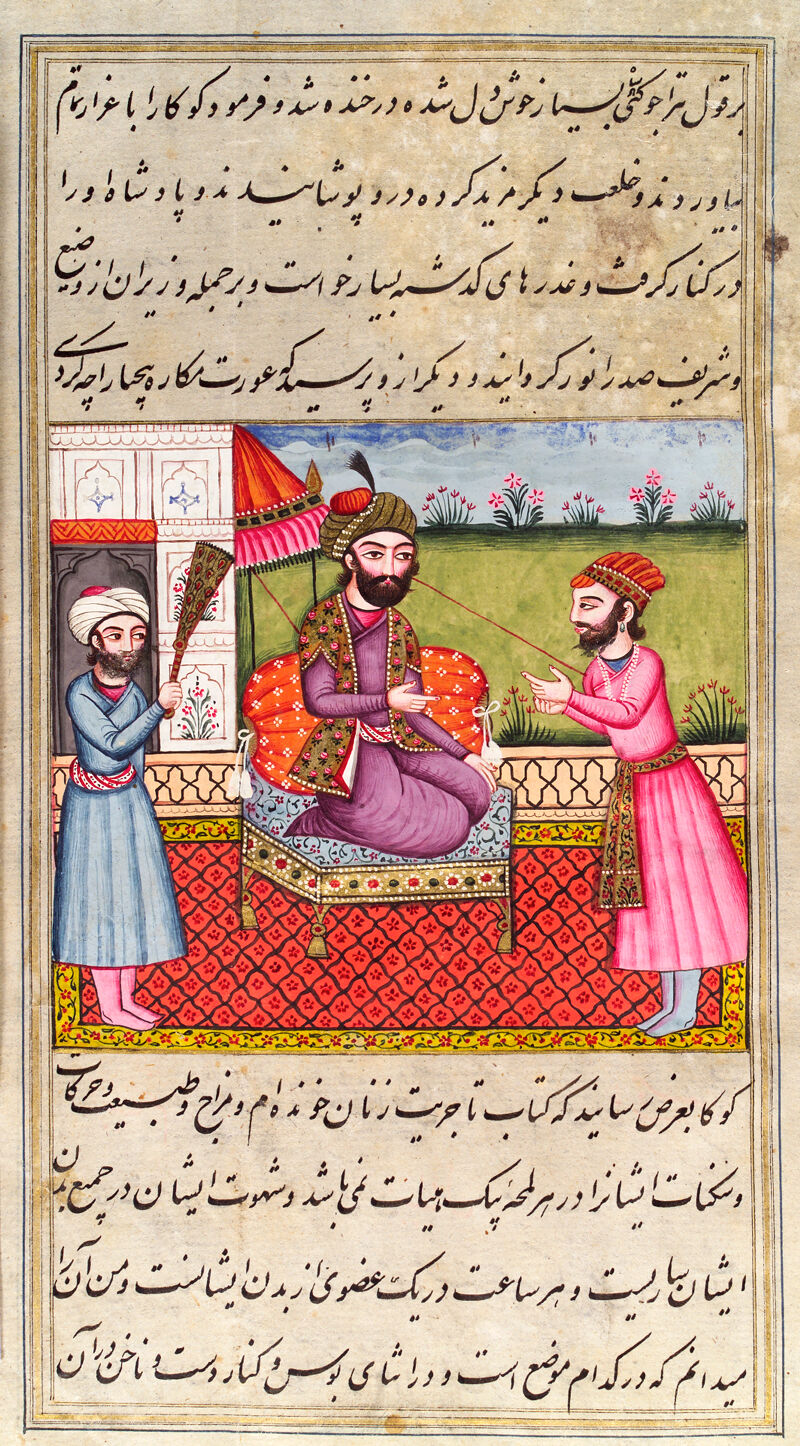 بر قول ترا جوکئی بسیار خوش دل شده در خنده شد و فرمود کوکا را با عزاز تمام
بیاوردند و خلعت دیکر مزید کرده در و پوشانیدند و پادشاه او را
در کنار کرفت و عذرهای کذشته بسیار خواست و بر جمله وزیران از وضیع
و شریف صدرا نور کردانیدند و دیکر از و پرسید که عورت مکاره بیحیا را چه کردی
کوکا بعرض رسانید که کتاب تا جریت زنان خونده ام و مزاج و طبیعت و حرکات
و سکنات ایشانرا در هر لمحه بیک هیات نمی باشد و شهوت ایشان در جمیع بدن
ایشان ساریست و هر ساعت در یک عضوی از بدن ایشانست و من آن را
میدانم که در کدام موضع است و در اثنای بوس و کنار دست و ناخن در آن